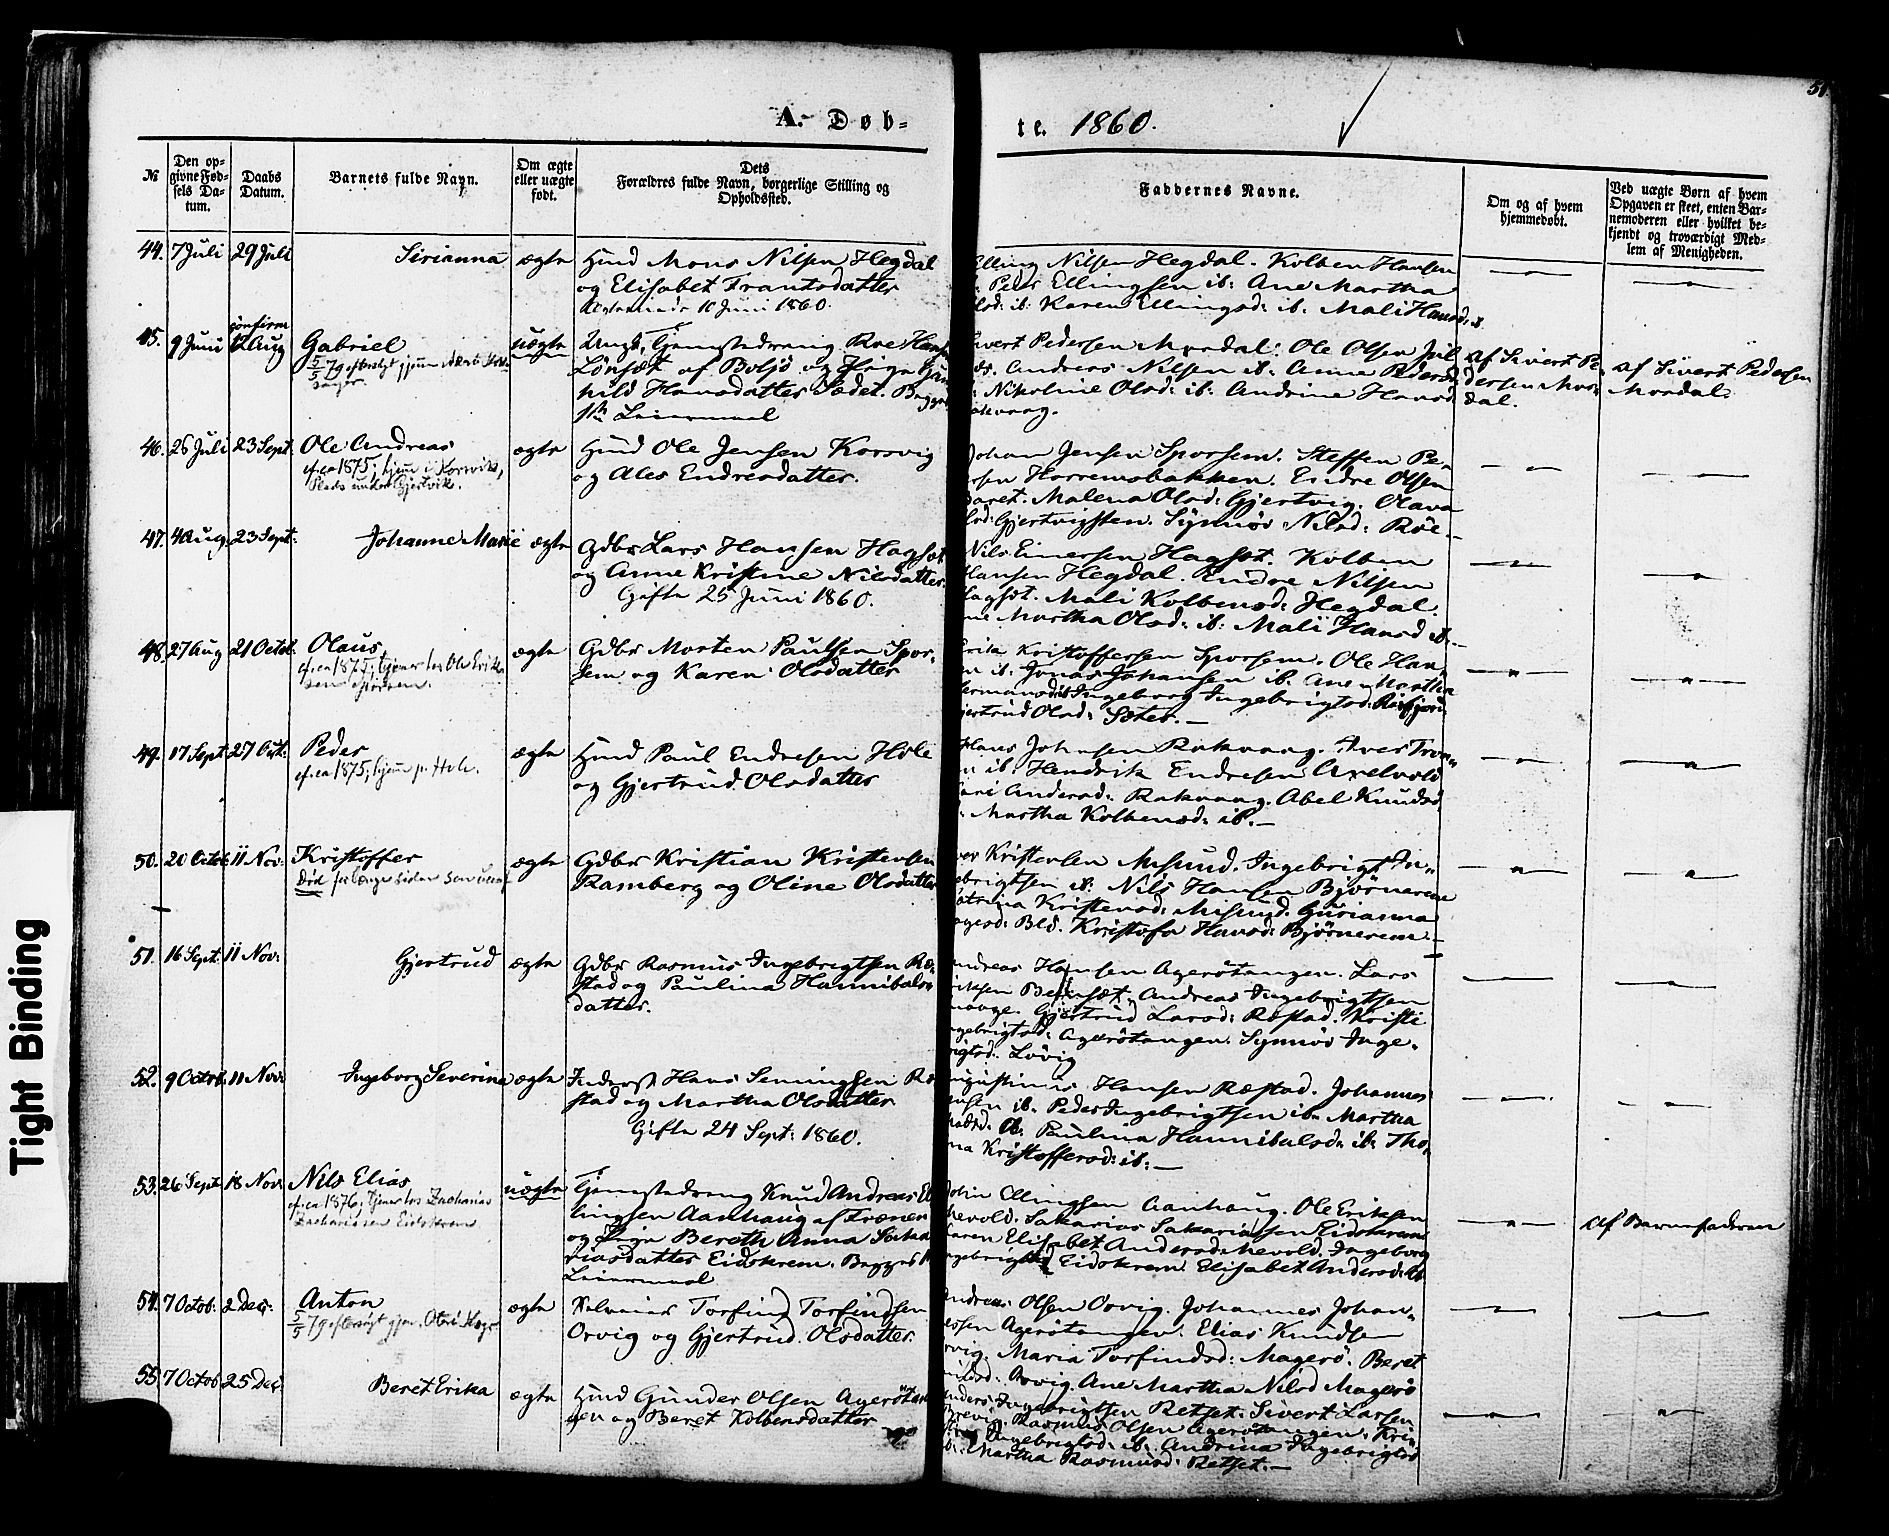 51
A. Døb-
te. 1860.
№
Den opgivne Fødsels Datum.
Daabs Datum.
Barnets fulde Navn.
Om ægte eller uægte født.
Dets Forældres fulde Navn, borgerlige Stilling og Opholdssted.
Faddernes Navne.
Om og af hvem hjemmedøbt.
Ved uægte Børn af hvem Opgaven er skeet, enten Barnemoderen eller hvilket bekjendt og troværdigt Medlem af Menigheden.
44. 7 Juli 29 Juli Sirianna ægte Huusmd Mons Nilsen Hegdal
og Elisabet Frantsdatter
10 Juni 1860.
Elling Nilsen Hegdal. Kolben Hansen
Peder Ellingsen ib: Ane Martha
ib: Karen Ellingsd: ib. Mali Hansd: ib
45. 9 Juni confirm 12 Aug Gabriel uægte
5/5 79 efterlyst gjennem
Ungk., Tjenestedreng Roe Hansen
Lønset af Bolsø og Pige Gun
hild Hansdatter Sædet.
1ste Leiermaal
Sivert Pedersen Mordal. Ole Olsen
Andreas Nilsen ib. Anna Pedersd:
Nikoline Olsd: ib: Andrine Hansd
af Sivert Pe-
dersen Mor-
dal.
af Sivert Pedersen
Mordal
46. 26 Juli 23 Sept. Ole Andreas ægte
cf. ca 1875; hjem i Korsvik,
Plads under Gjertvik.
Huusmd Ole Jensen Korsvig
og Ales Endresdatter.
Johan Jensen Sporsem. Steffen Pe-
Harremsbakken. Endre Olsen
Malena Olsd: Gjertvig. Olava
Synnøv Nilsd: Røe.
47. 4 Aug. 23 Sept. Johanne Marie ægte Gdbr Lars Hansen Hagset
og Anne Kristine Nilsdatter.
Gifte 25 Juni 1860.
Nils Einersen Hagset. Kolben
Hansen Hegdal. Endre Nilsen
Hagset. Mali Kolbensd: Hegdal.
Martha Olsd: ib: Mali Hansd ib.
48. 27 Aug 21 Octob. Olaus ægte
cf. ca 1875; tjener hos Ole Erik-
sen Sporsem.
Gdbr Morten Paulsen Spor-
sem og Karen Olsdatter
Erik Kristoffersen Sporsem. Ole Han-
sen ib. Jonas Johansen ib. Ane Martha
Ingeborg Ingebrigtsd:
Gjertrud Olsd: Sæter.
49. 17 Sept 27 Oct. Peder ægte
cf. ca 1875; hjem p. Hole.
Huusmd Paul Endresen Hole
og Gjertrud Olsdatter
Hans Johnsen Rakvaag. Iver Tron-
sen ib. Hendrik Endresen Axelvold
Kari Andersd: Rakvaag. Abel Knudsd
Martha Kolbensd: ib.
50. 20 Octob 11 Nov: Kristoffer ægte
Død for længe siden
Gdbr Kristian Kristensen
Ramberg og Oline Olsdatter
Iver Kristensen Misund. Ingebrigt In-
gebrigtsen ib: Nils Hansen Bjørnerem
Katrina Kristensd: Misund. Gurianna
Kristofa Hansd: Bjørnerem.
51. 16 Sept. 11 Nov: Gjertrud ægte Gdbr Rasmus Ingebrigtsen Ræ-
stad og Paulina Hannibals-
datter.
Andreas Hansen Agerøtangen. Lars
Eriksen Andreas Ingebrigtsen
Gjertrud Larsd: Ræstad. Kristi
Ingebrigtsd: Agerøtangen. Synnøv Inge-
brigtsd. Løvig
52. 9 Octob. 11 Nov: Ingeborg Severina ægte Inderst Hans Semingsen Ræ
stad og Martha Olsdatter
Gifte 24 Sept: 1860.
Augustinus Hansen Ræstad. Johannes
Hansen ib. Peder Ingebrigtsen ib. Martha
Paulina Hannibalsd: ib: Tho-
Kristoffersd: ib:
53. 26 Sept 18 Nov: Nils Elias uægte
cf. ca 1876, tjener hos Zacharias
Zachariassen Eidskrem
Tjenestedreng Knud Andreas El
lingsen Aanhaug af Frænen
og Pige Bereth Anna Saka
riasdatter Eidskrem. Begges 1ste
Leiermaal
John Ellingsen Aanhaug. Ole Eriksen
Nervold. Sakarias Sakariassen Eidskrem
Karen Elisabet Andersd: Nervold. Ingeborg
Ingebrigtsd Eidskrem. Elisabet Andersd: ib
af Barnefaderen
54. 7 Octob: 2 Dec: Anton ægte
5/5 79 efterlyst gjen.
Selveier Torfind Torfindsen
Orvig og Gjertrud Olsdatter.
Andreas Olsen Orvig. Johannes Johan-
nessen Agerøtangen. Elias Knudsen
Orvig. Maria Torfindsd: Magerø. Beret
Orvig. Ane Martha Nilsd Magerø
55. 7 Octob 25 Dec Beret Erika ægte Huusmd Gunder Olsen Agerøtan
gen og Beret Kolbensdatter
Anders Ingebrigtsen Retset. Sivert Larsen
Rasmus Olsen Agerøtangen. Kri-
Ingebrigtsd: ib. Andrina Ingebrigtsd
Martha Rasmusd: Retset.
Tight Binding